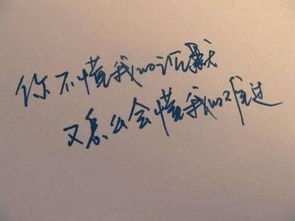 你不懂我的沉默
又怎么会懂我的难过